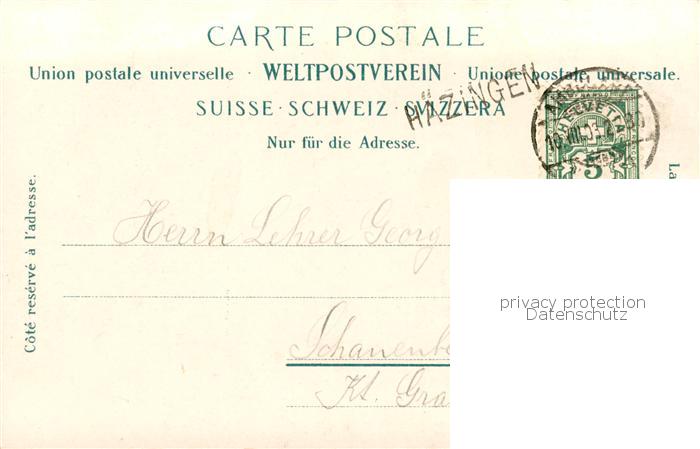 CARTE POSTALE
Union postale universelle · WELTPOSTVEREIN · Unione postale universale.
SUISSE · SCHWEIZ · SVIZZERA
HÄZINGEN
Nur für die Adresse.
HELVETIA
10.VIII.05
5
Côté reservé à l'adresse.
La
Herrn Lehrer Georg
privacy protection
Datenschutz
Kt. Gra